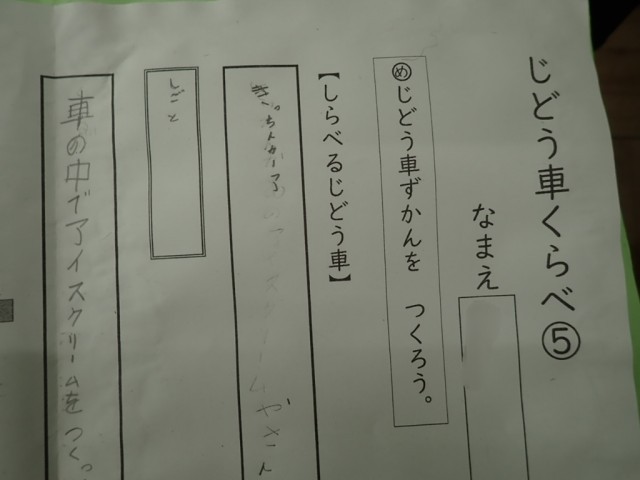 じどう車くらべ⑤
なまえ
㋱じどう車ずかんを つくろう。
【しらべるじどう車】
きっちんかー
やさん
しごと
車の中でアイスクリームをつくっ